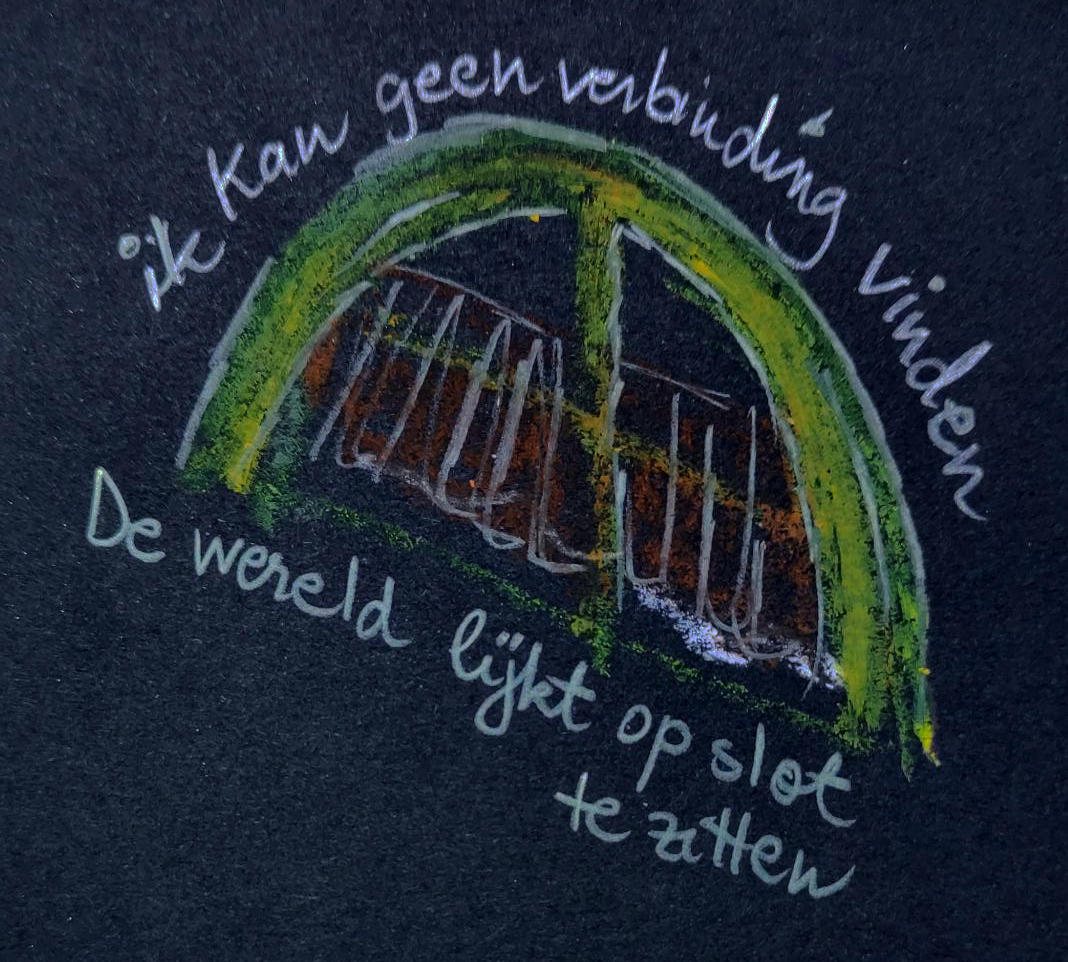 ik kan geen verbinding vinden
De wereld lijkt op slot
te zitten